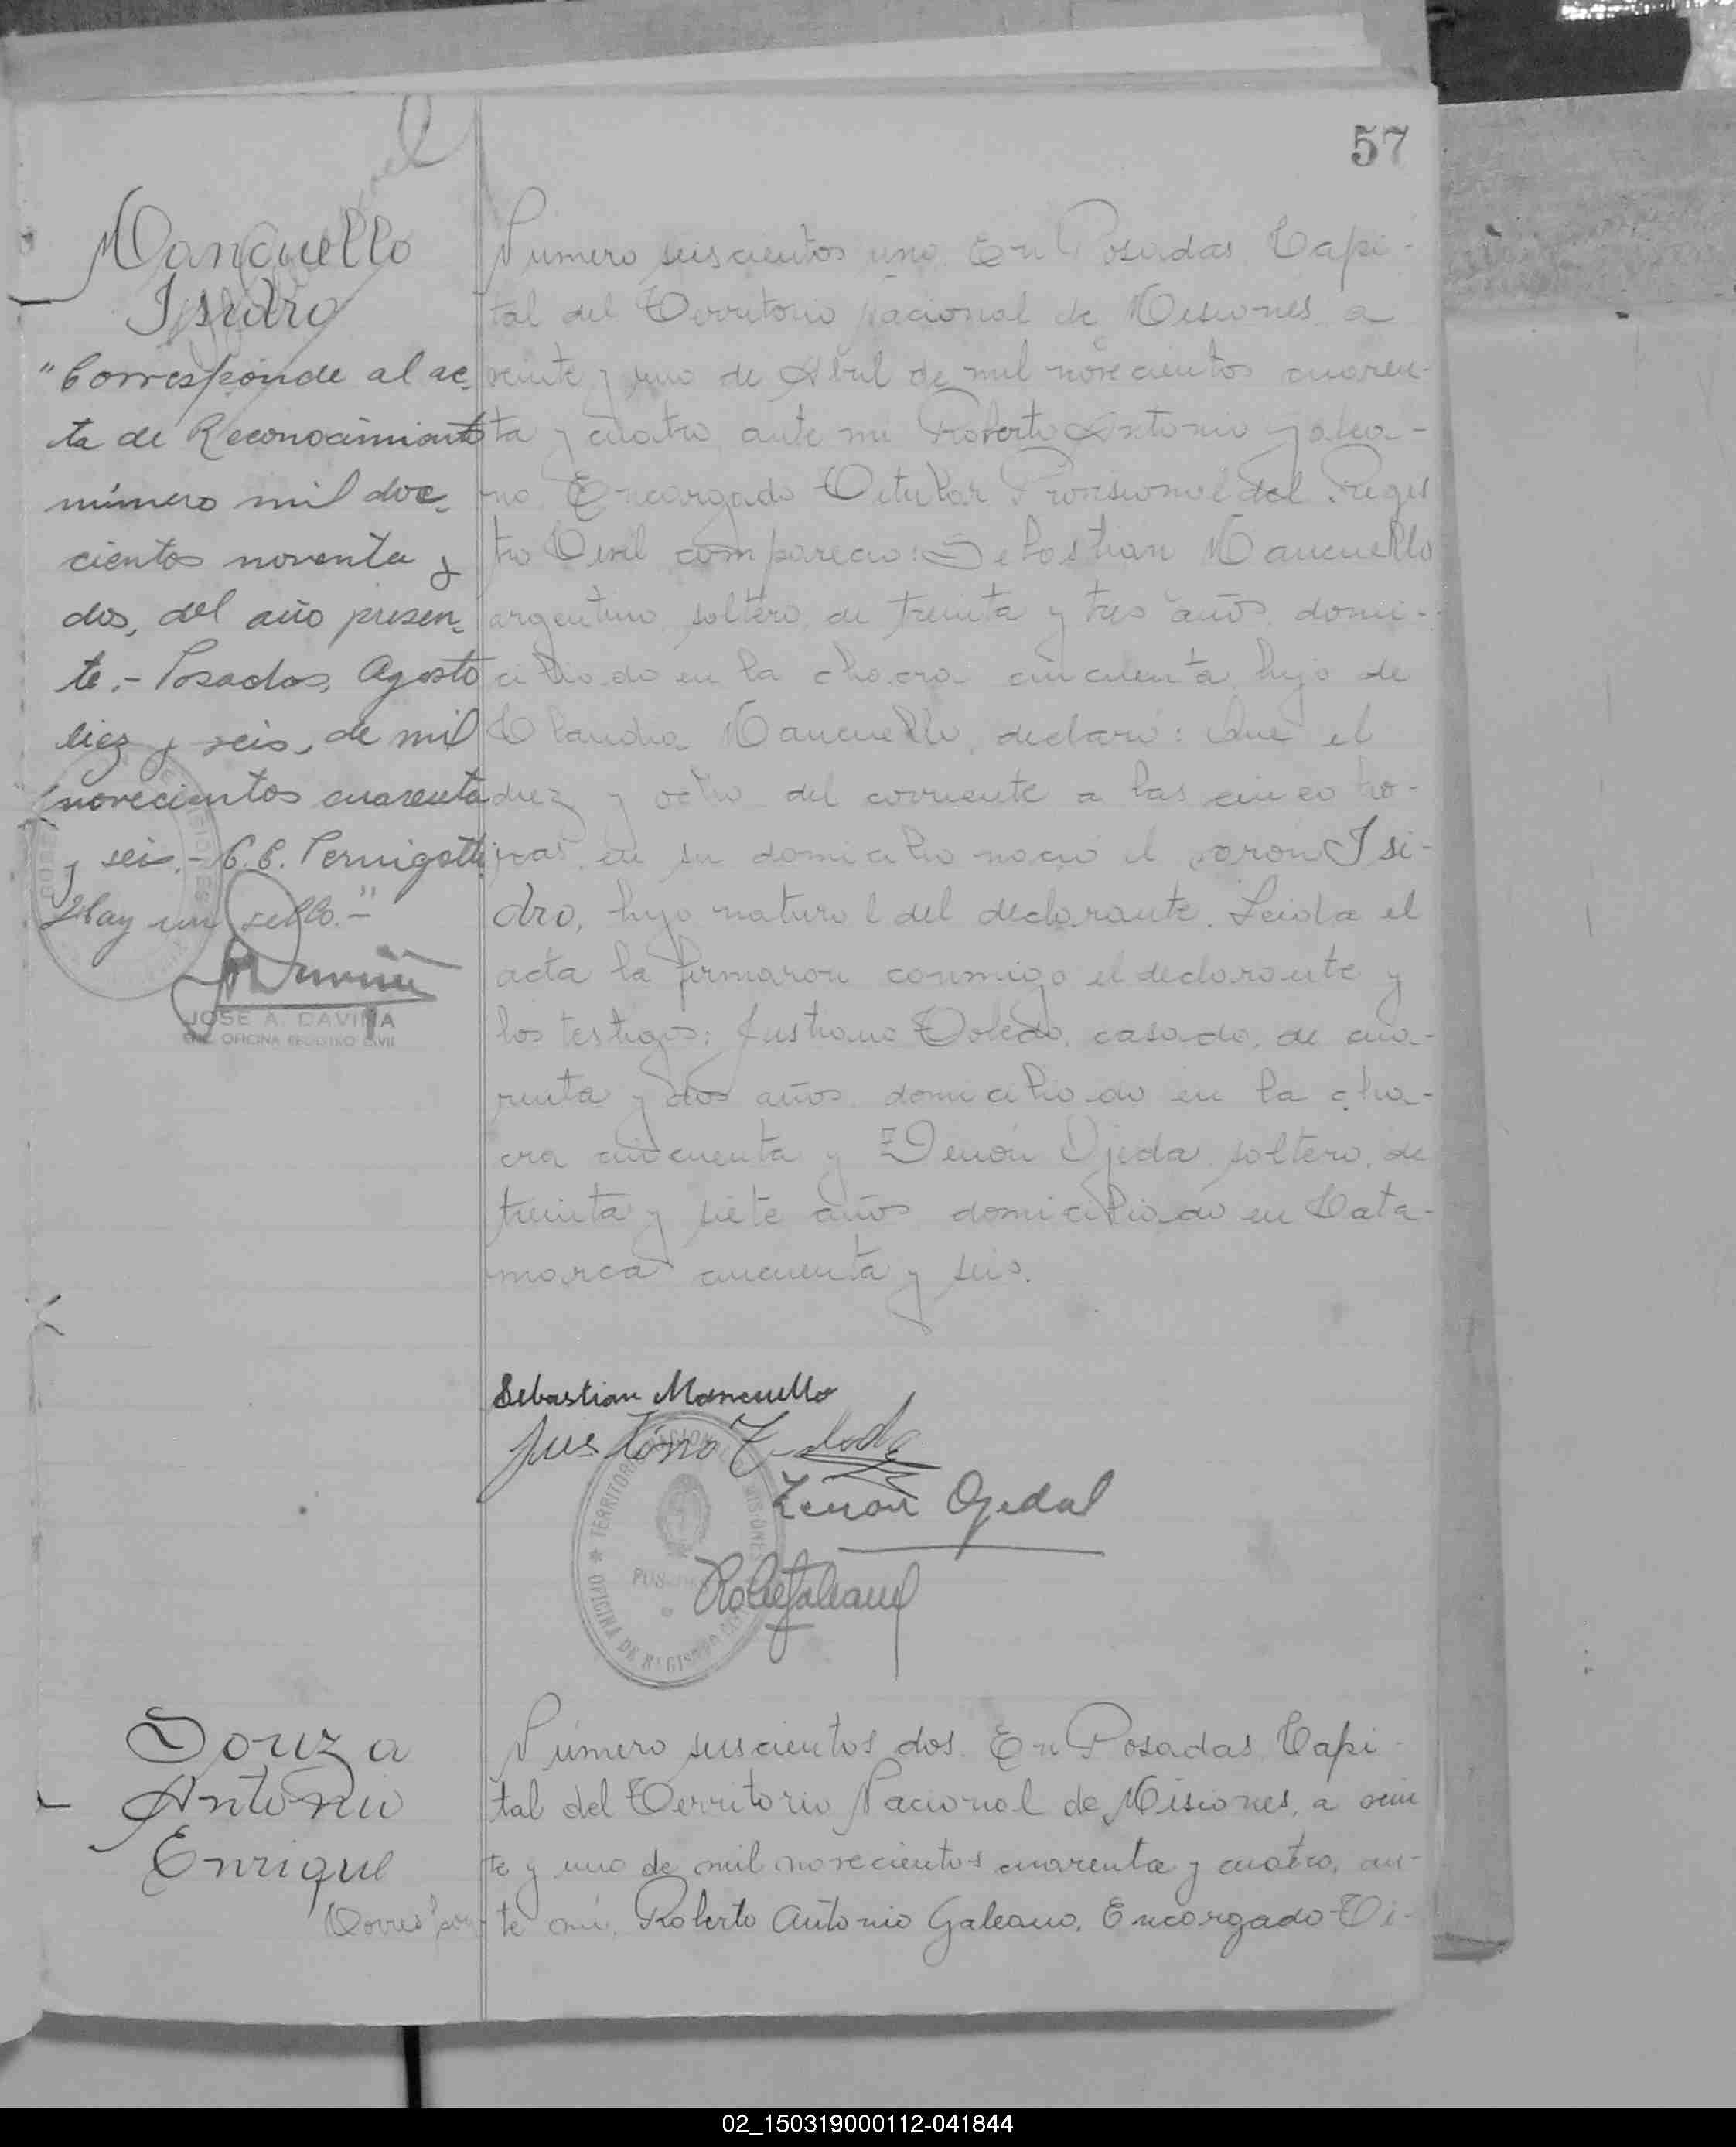 57
Mancuello
Isidro
"Corresponde al ac-
ta de Reconocimiento
número mil dos-
cientos noventa y
dos, del año presen-
te.- Posadas, Agosto
diez y seis, de mil
novecientos cuarenta
y seis.- C.C. Pernigotti
Hay un sello.-"
JOSE A. DAVIÑA
ENC. OFICINA REGISTRO CIVIL
Numero seiscientos uno. En Posadas, Capi-
tal del Territorio Nacional de Misiones a
veinte y uno de Abril de mil novecientos cuaren-
ta y cuatro, ante mi Roberto Antonio Galea-
no Encargado Titular Provisional del Regis
tro Civil compareció: Sebastian Mancuello
argentino, soltero, de treinta y tres años, domi-
ciliado en la chacra cincuenta, hijo de
Claudia Mancuello, declaró: Que el
diez y ocho del corriente a las cinco ho-
ras, en su domicilio nació el varon Isi-
dro, hijo natural del declarante. Leida el
acta la firmaron conmigo el declarante y
los testigos: Justiano Toledo, casado, de cua-
renta y dos años, domiciliado en la cha-
cra cincuenta y Zenón Ojeda, soltero, de
treinta y siete años, domiciliado en Cata-
marca cincuenta y seis.
Sebastian Mancuello
Zenon Ojeda
TERRITORIO NACIONAL MISIONES
OFICINA DE REGISTRO CIVIL
Souza
Antonio
Enrique
Correspon-
Número seiscientos dos. En Posadas, Capi-
tal del Territorio Nacional de Misiones, a vein
te y uno de mil novecientos cuarenta y cuatro, an-
te mí, Roberto Antonio Galeano, Encargado Ti-
02_150319000112-041844